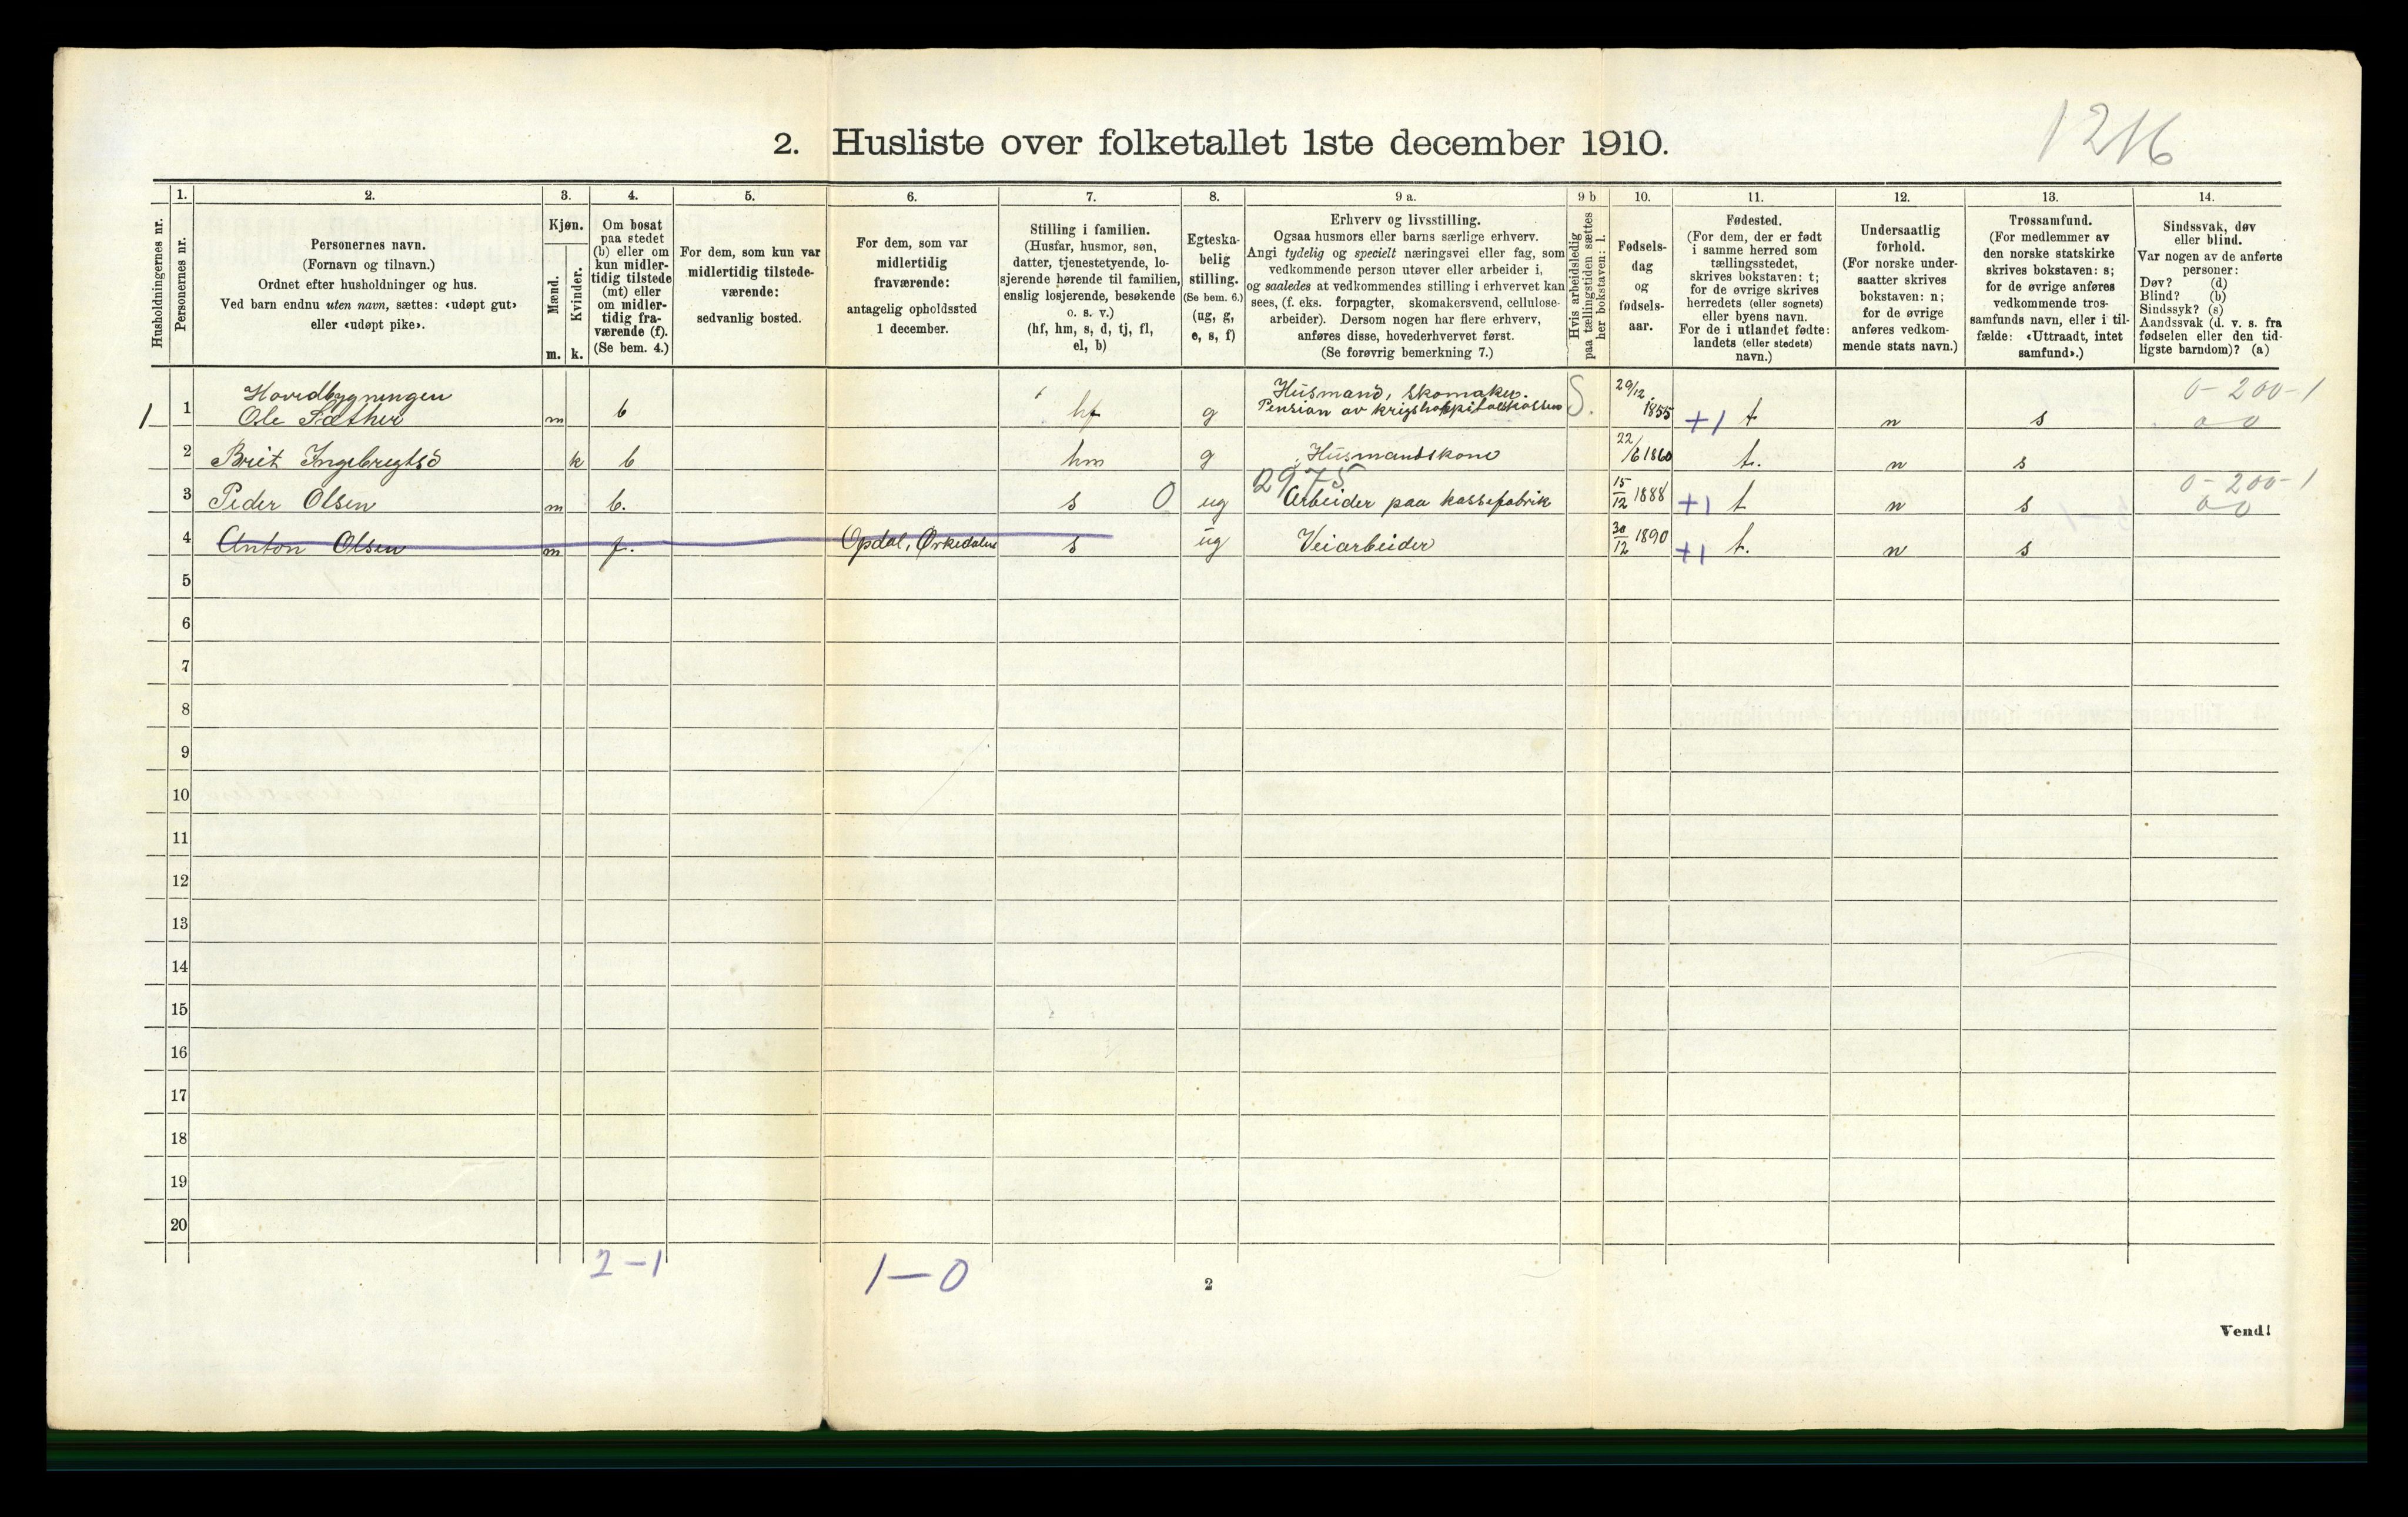 1216
2. Husliste over folketallet 1ste december 1910.
Husholdningernes nr.
1.
Personernes nr.
2.
Personernes navn.
(Fornavn og tilnavn.)
Ordnet efter husholdninger og hus.
Ved barn endnu uten navn, sættes: «udøpt gut»
eller «udøpt pike».
3.
Kjøn.
Mænd.
Kvinder.
m. k.
4.
Om bosat
paa stedet
(b) eller om
kun midler-
tidig tilstede
(mt) eller
om midler-
tidig fra-
værende (f).
(Se bem. 4.)
5.
For dem, som kun var
midlertidig tilstede-
værende:
sedvanlig bosted.
6.
For dem, som var
midlertidig
fraværende:
antagelig opholdssted
1 december.
7.
Stilling i familien.
(Husfar, husmor, søn,
datter, tjenestetyende, lo-
sjerende hørende til familien,
enslig losjerende, besøkende
o. s. v.)
(hf, hm, s, d, tj, fl,
el, b)
8.
Egteska-
belig
stilling.
(Se bem. 6.)
(ug, g,
e, s, f)
9 a.
Erhverv og livsstilling.
Ogsaa husmors eller barns særlige erhverv.
Angi tydelig og specielt næringsvei eller fag, som
vedkommende person utøver eller arbeider i,
og saaledes at vedkommendes stilling i erhvervet kan
sees, (f. eks. forpagter, skomakersvend, cellulose-
arbeider). Dersom nogen har flere erhverv,
anføres disse, hovederhvervet først.
(Se forøvrig bemerkning 7.)
9 b
Hvis arbeidsledig
paa tællingstiden sættes
her bokstaven: l.
10.
Fødsels-
dag
og
fødsels-
aar.
11.
Fødested.
(For dem, der er født
i samme herred som
tællingsstedet,
skrives bokstaven: t;
for de øvrige skrives
herredets (eller sognets)
eller byens navn.
For de i utlandet fødte:
landets (eller stedets)
navn.)
12.
Undersaatlig
forhold.
(For norske under-
saatter skrives
bokstaven: n;
for de øvrige
anføres vedkom-
mende stats navn.)
13.
Trossamfund.
(For medlemmer av
den norske statskirke
skrives bokstaven: s;
for de øvrige anføres
vedkommende tros-
samfunds navn, eller i til-
fælde: «Uttraadt, intet
samfund».)
14.
Sindssvak, døv
eller blind.
Var nogen av de anførte
personer:
Døv? (d)
Blind? (b)
Sindssyk? (s)
Aandssvak (d. v. s. fra
fødselen eller den tid-
ligste barndom)? (a)
Hovedbygningen Husmand, Skomaker. 29/12 0-200-1
1 1 Ole Sæther m b hf g Pension av krigshospitalskassen S. 1855 +1 t n s 0-0
2 Brit Ingebregtsd k b hm g Husmandskone 22/6 1860 t. n s
2975 0-200-1
3 Peder Olsen m b. s 0 ug Arbeider paa kassefabrik 15/12 1888 +1 t n s 0-0
4 Anton Olsen m f. Opdal, Ørkedalen s ug Veiarbeider 30/12 1890 +1 t. n s
5
6
7
8
9
10
11
12
13
14
15
16
17
18
19
20
2-1 1-0
2
Vend!